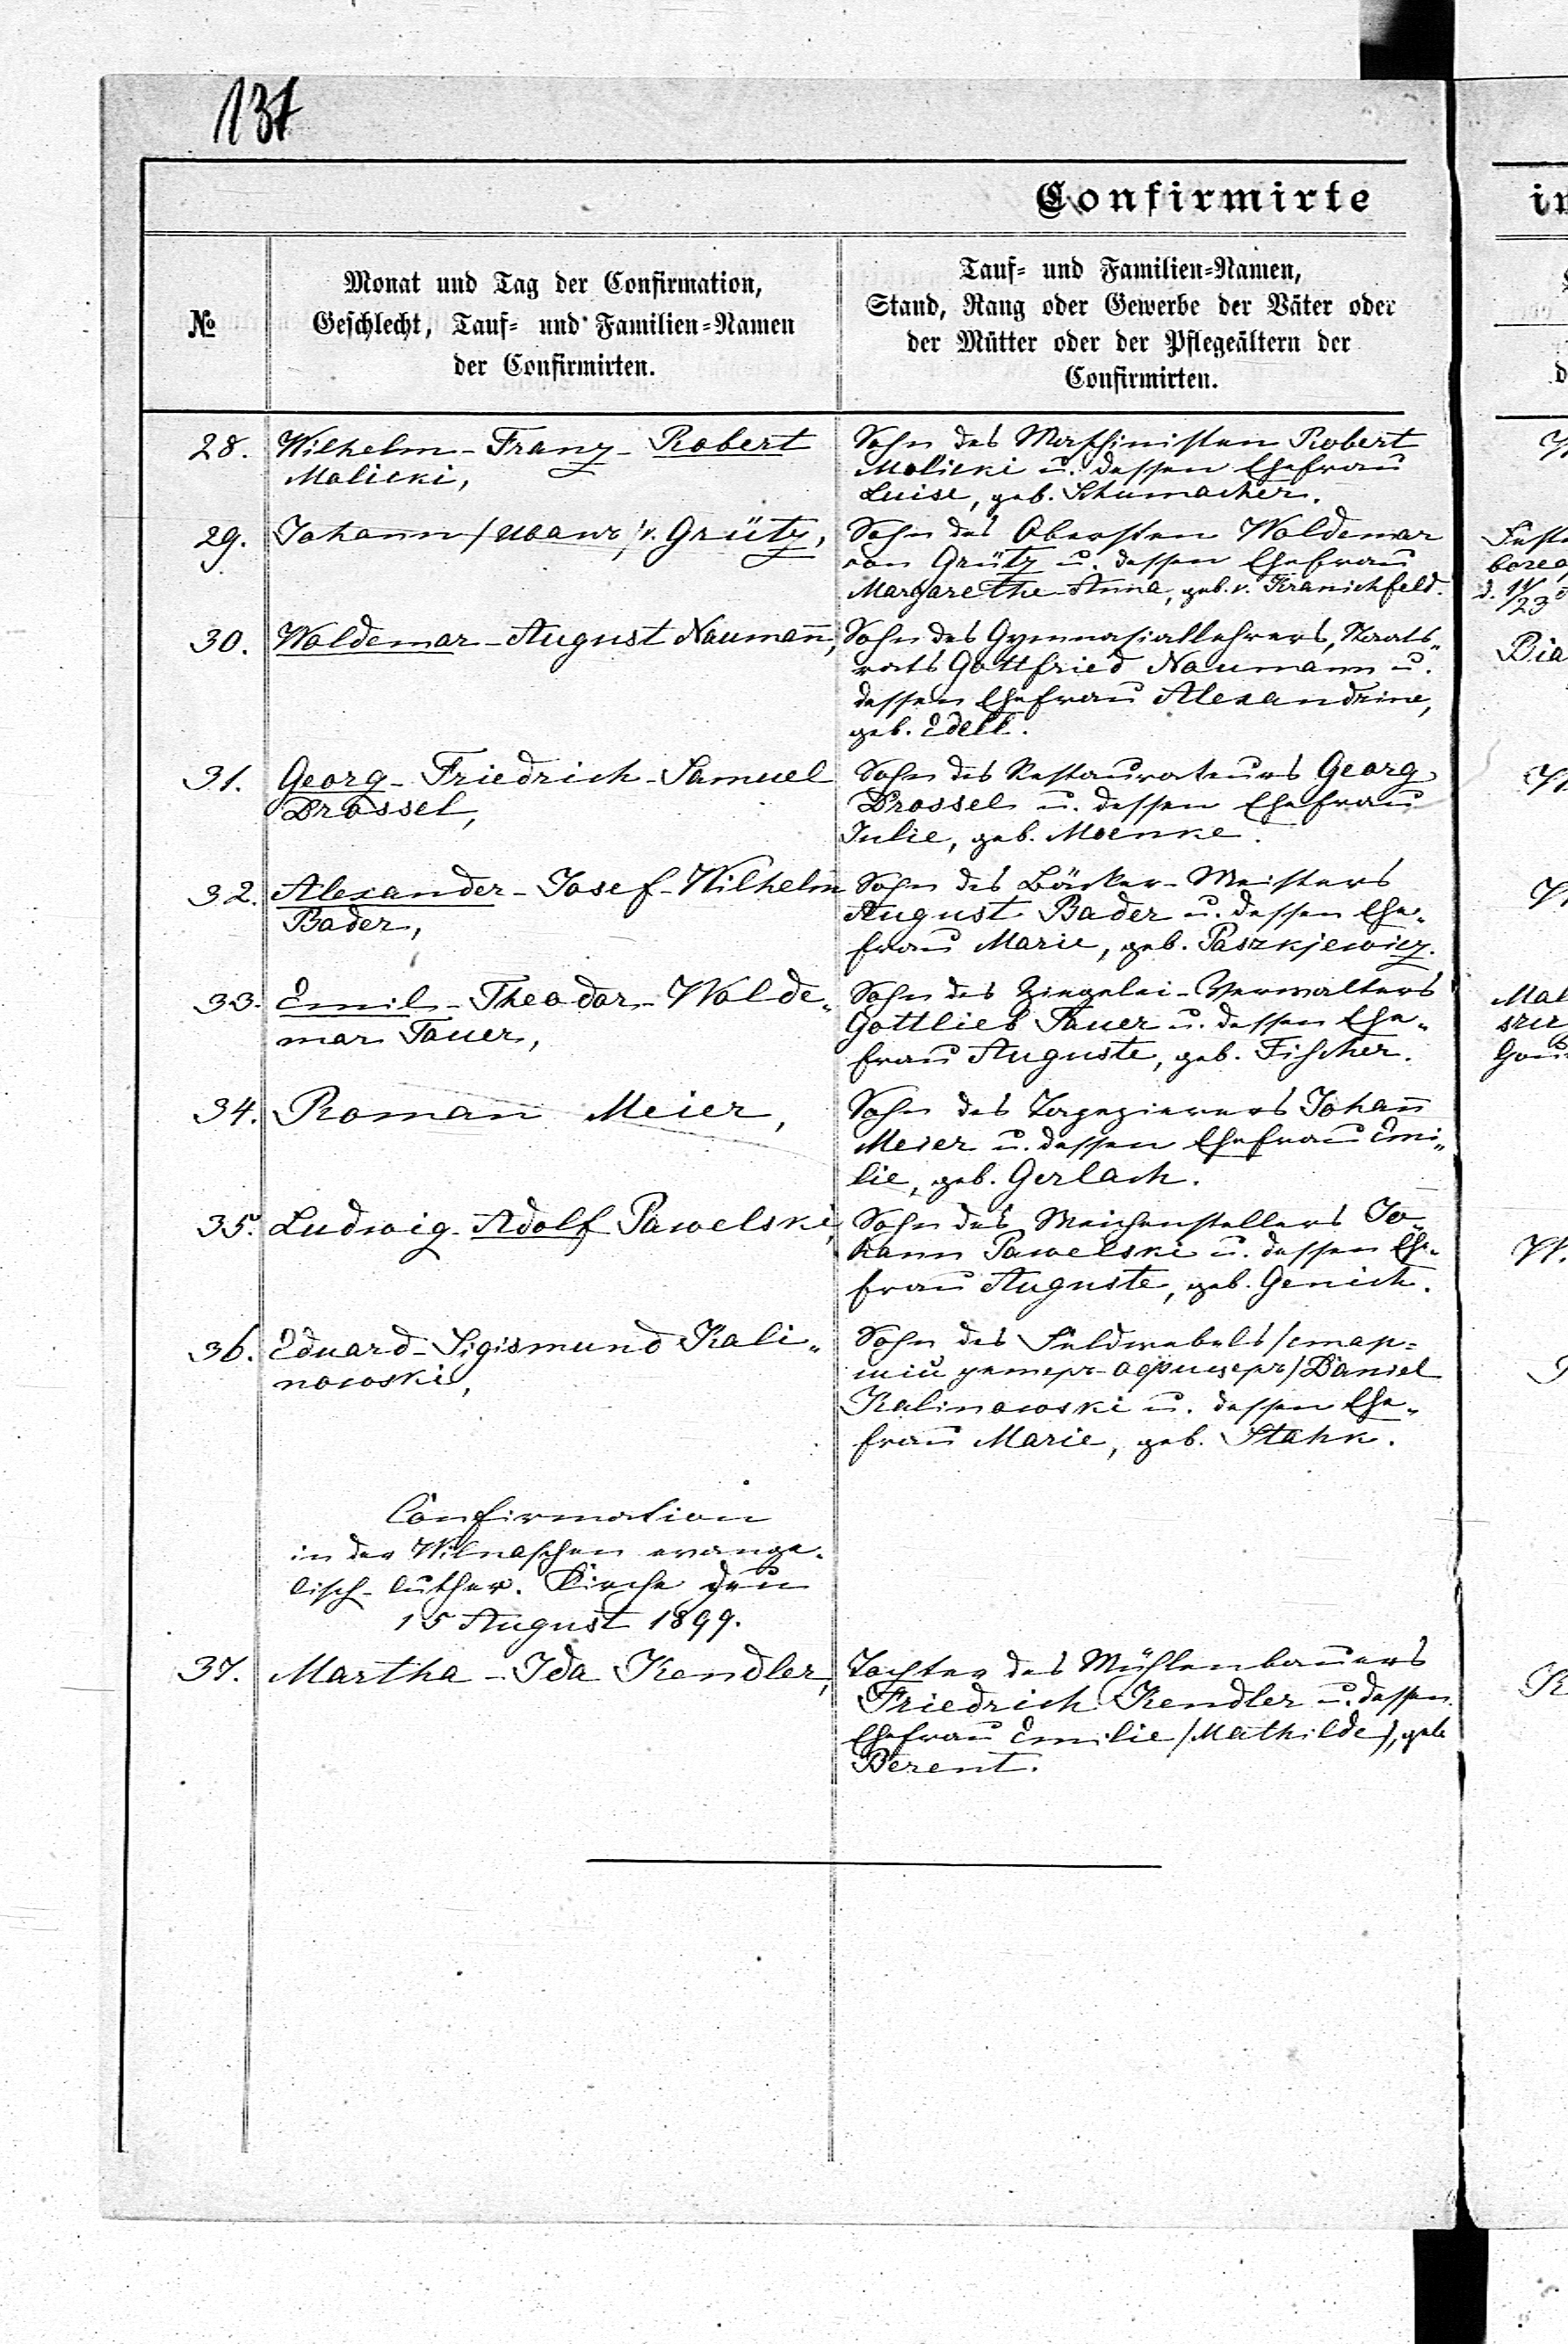 137
Confirmirte
№
Monat und Tag der Confirmation,
Geschlecht, Tauf- und Familien-Namen
der Confirmirten.
Tauf- und Familien-Namen,
Stand, Rang oder Gewerbe der Väter oder
der Mütter oder der Pflegeältern der
Confirmirten.
28.
Wilhelm-Franz-Robert
Malicki,
Sohn des Maschinisten Robert
Malicki u. dessen Ehefrau
Luise, geb. Schumacher.
29.
Johann /Иванъ/ v. Grütz,
Sohn des Obersten Woldemar
von Grütz u. dessen Ehefrau
Margarethe-Anna, geb. v. Kranichfeld.
30.
Woldemar-August Naumann,
Sohn des Gymnasiallehrers, Staats„
rats Gottfried Naumann u.
dessen Ehefrau Alexandrine,
geb. Edell.
31.
Georg-Friedrich-Samuel
Drossel,
Sohn des Restaurateurs Georg
Drossel u. dessen Ehefrau
Julie, geb. Moenke.
32.
Alexander-Josef-Wilhelm
Bader,
Sohn des Bäcker-Meisters
August Bader u. dessen Ehe„
frau Marie, geb. Paszkjewicz.
33.
Emil-Theodor-Wolde„
mar Tauer,
Sohn des Ziegelei-Verwalters
Gottlieb Tauer u. dessen Ehe„
frau Auguste, geb. Fischer.
34.
Roman Meier,
Sohn des Tapezierers Johann
Meier u. dessen Ehefrau Emi„
lie, geb. Gerlach.
35.
Ludwig-Adolf Pawelski,
Sohn des Weichenstellers Jo„
hann Pawelski u. dessen Ehe„
frau Auguste, geb. Genich.
36.
Eduard-Sigismund Kali„
nowski,
Sohn des Feldwebels /стар=
шій унтеръ-офицеръ/ Daniel
Kalinowski u. dessen Ehe„
frau Marie, geb. Stahk.
Confirmation
in der Wilnaschen evange„
lisch-luther. Kirche den
15 August 1899.
37.
Martha-Ida Kendler,
Tochter des Mühlenbauers
Friedrich Kendler u. dessen
Ehefrau Emilie /Mathilde/, geb
Berent.